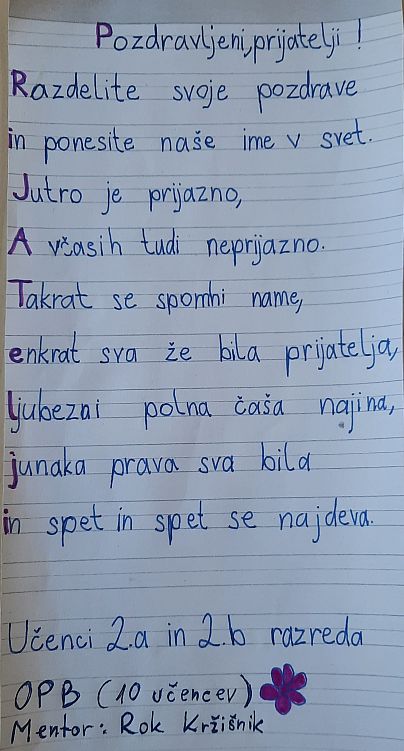 Pozdravljeni, prijatelji!
Razdelite svoje pozdrave
in ponesite naše ime v svet.
Jutro je prijazno,
A včasih tudi neprijazno.
Takrat se spomni name,
enkrat sva že bila prijatelja,
ljubezni polna čaša najina,
junaka prava sva bila
in spet in spet se najdeva.
Učenci 2.a in 2.b razreda
OPB (10 učencev)
Mentor: Rok Kržišnik